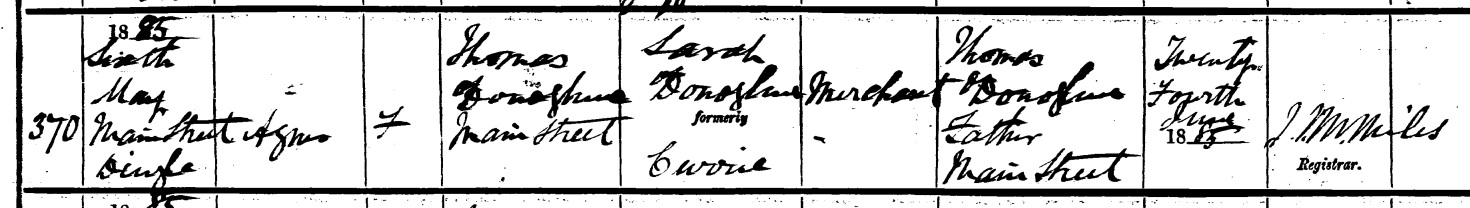 370
1885
Sixth
May
Main Street
Dingle
Agnes
F
Thomas
O'Donoghue
Main Street
Sarah
O'Donoghue
formerly
Merchant
Thomas
O'Donoghue
Father
Main Street
Twenty
Fourth
June
1885
Registrar.